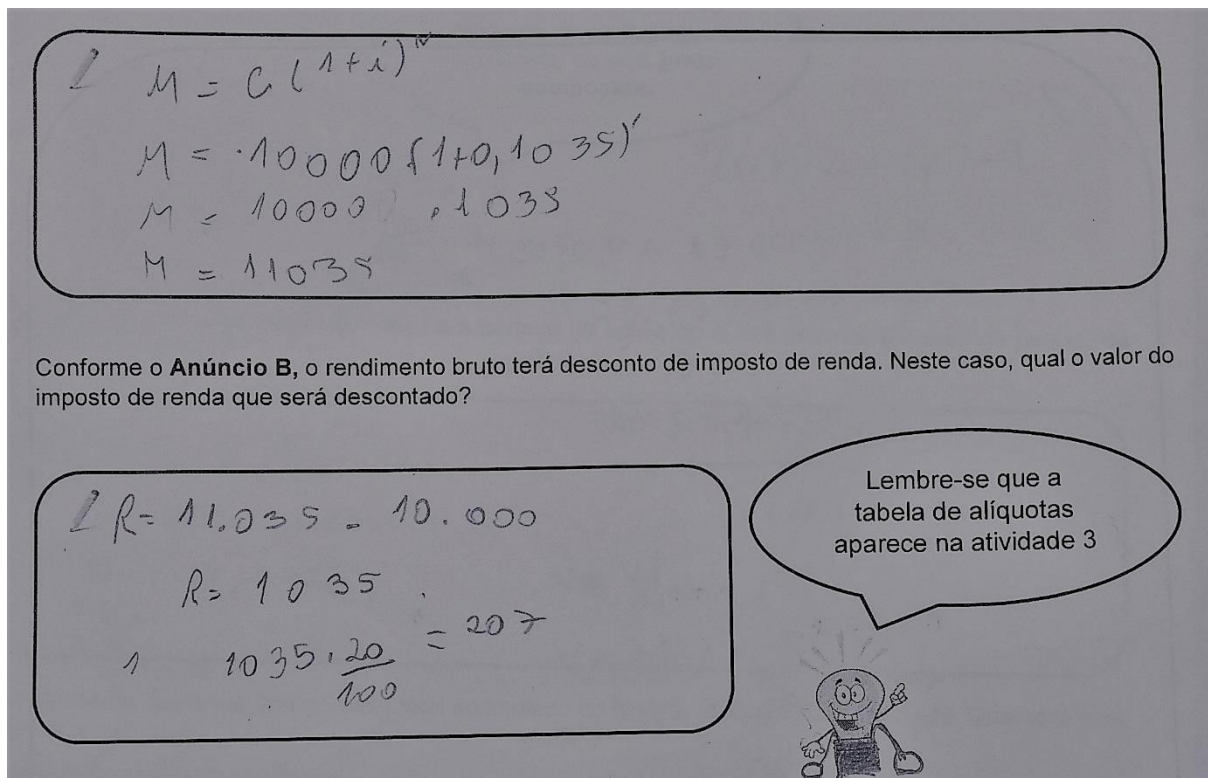 M = C(1+i)^n
M = 10000(1+0,1035)^1
M = 10000 .1035
M = 11035
Conforme o Anúncio B, o rendimento bruto terá desconto de imposto de renda. Neste caso, qual o valor do
imposto de renda que será descontado?
R= 11.035 - 10.000
R= 1035
1 1035 . 20/100 = 207
Lembre-se que a
tabela de alíquotas
aparece na atividade 3